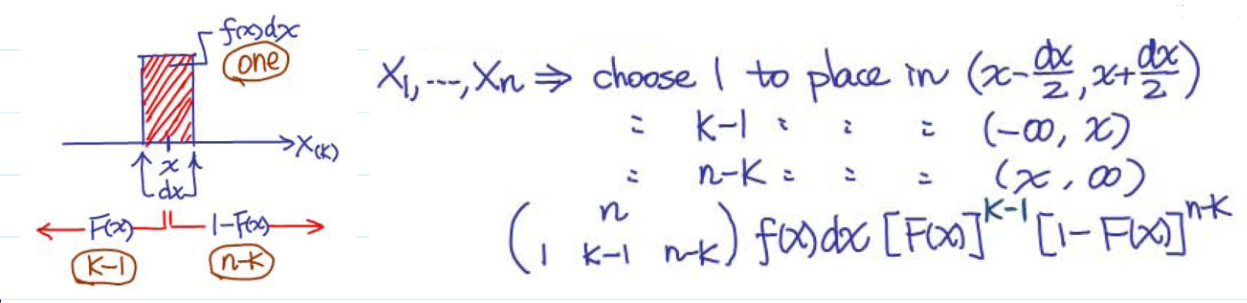 f(x)dx
one
X₍K₎
x
dx
F(x) 1-F(x)
K-1 n-K
X₁, ---, Xn ⇒ choose 1 to place in (x-dx/2, x+dx/2)
〃 K-1 〃 〃 〃 (-∞, x)
〃 n-K 〃 〃 〃 (x, ∞)
(n
1 K-1 n-K) f(x)dx [F(x)]^K-1 [1-F(x)]^n-K